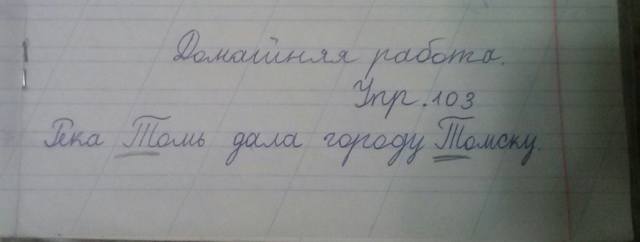 Домашняя работа.
Упр. 103
Река Томь дала городу Томску.